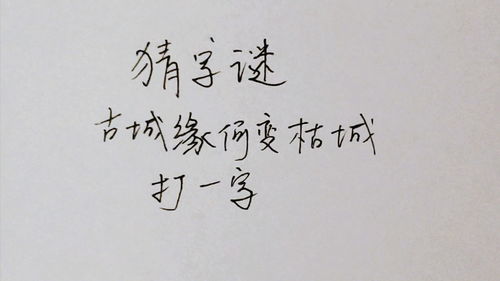 猜字谜
古城缘何变枯城
打一字